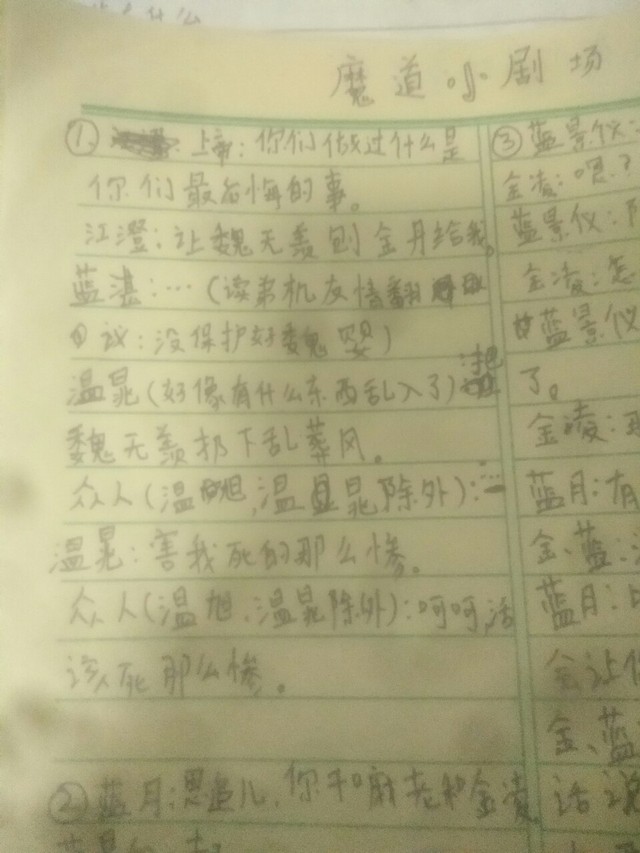 魔道小剧场
①上帝：你们做过什么是
你们最后悔的事。
江澄：让魏无羡刨金丹给我。
蓝湛：…（读弟机友情翻
议：没保护好魏婴）
温晁（好像有什么东西乱入了）：把
魏无羡扔下乱葬风。
众人（温旭，温晁除外）：…
温晁：害我死的那么惨。
众人（温旭、温晁除外）：呵呵，活
该死那么惨。
②蓝月：思追儿，你和金凌话说
③蓝景仪：
金凌：嗯？
蓝景仪：
金凌：怎
蓝景仪
了。
金凌：
蓝月：有
金、蓝：
蓝月：
会让你
金、蓝